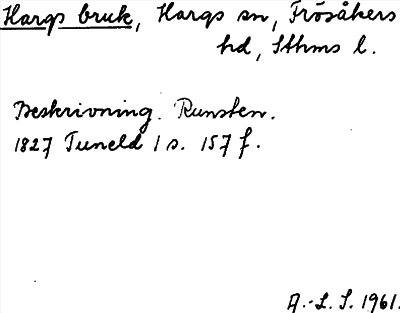 Hargs bruk, Hargs sn, Frösåkers
hd, Sthms l.
Beskrivning. Runsten.
1827 Tuneld 1 s. 157 f.
A.-L. S. 1961.